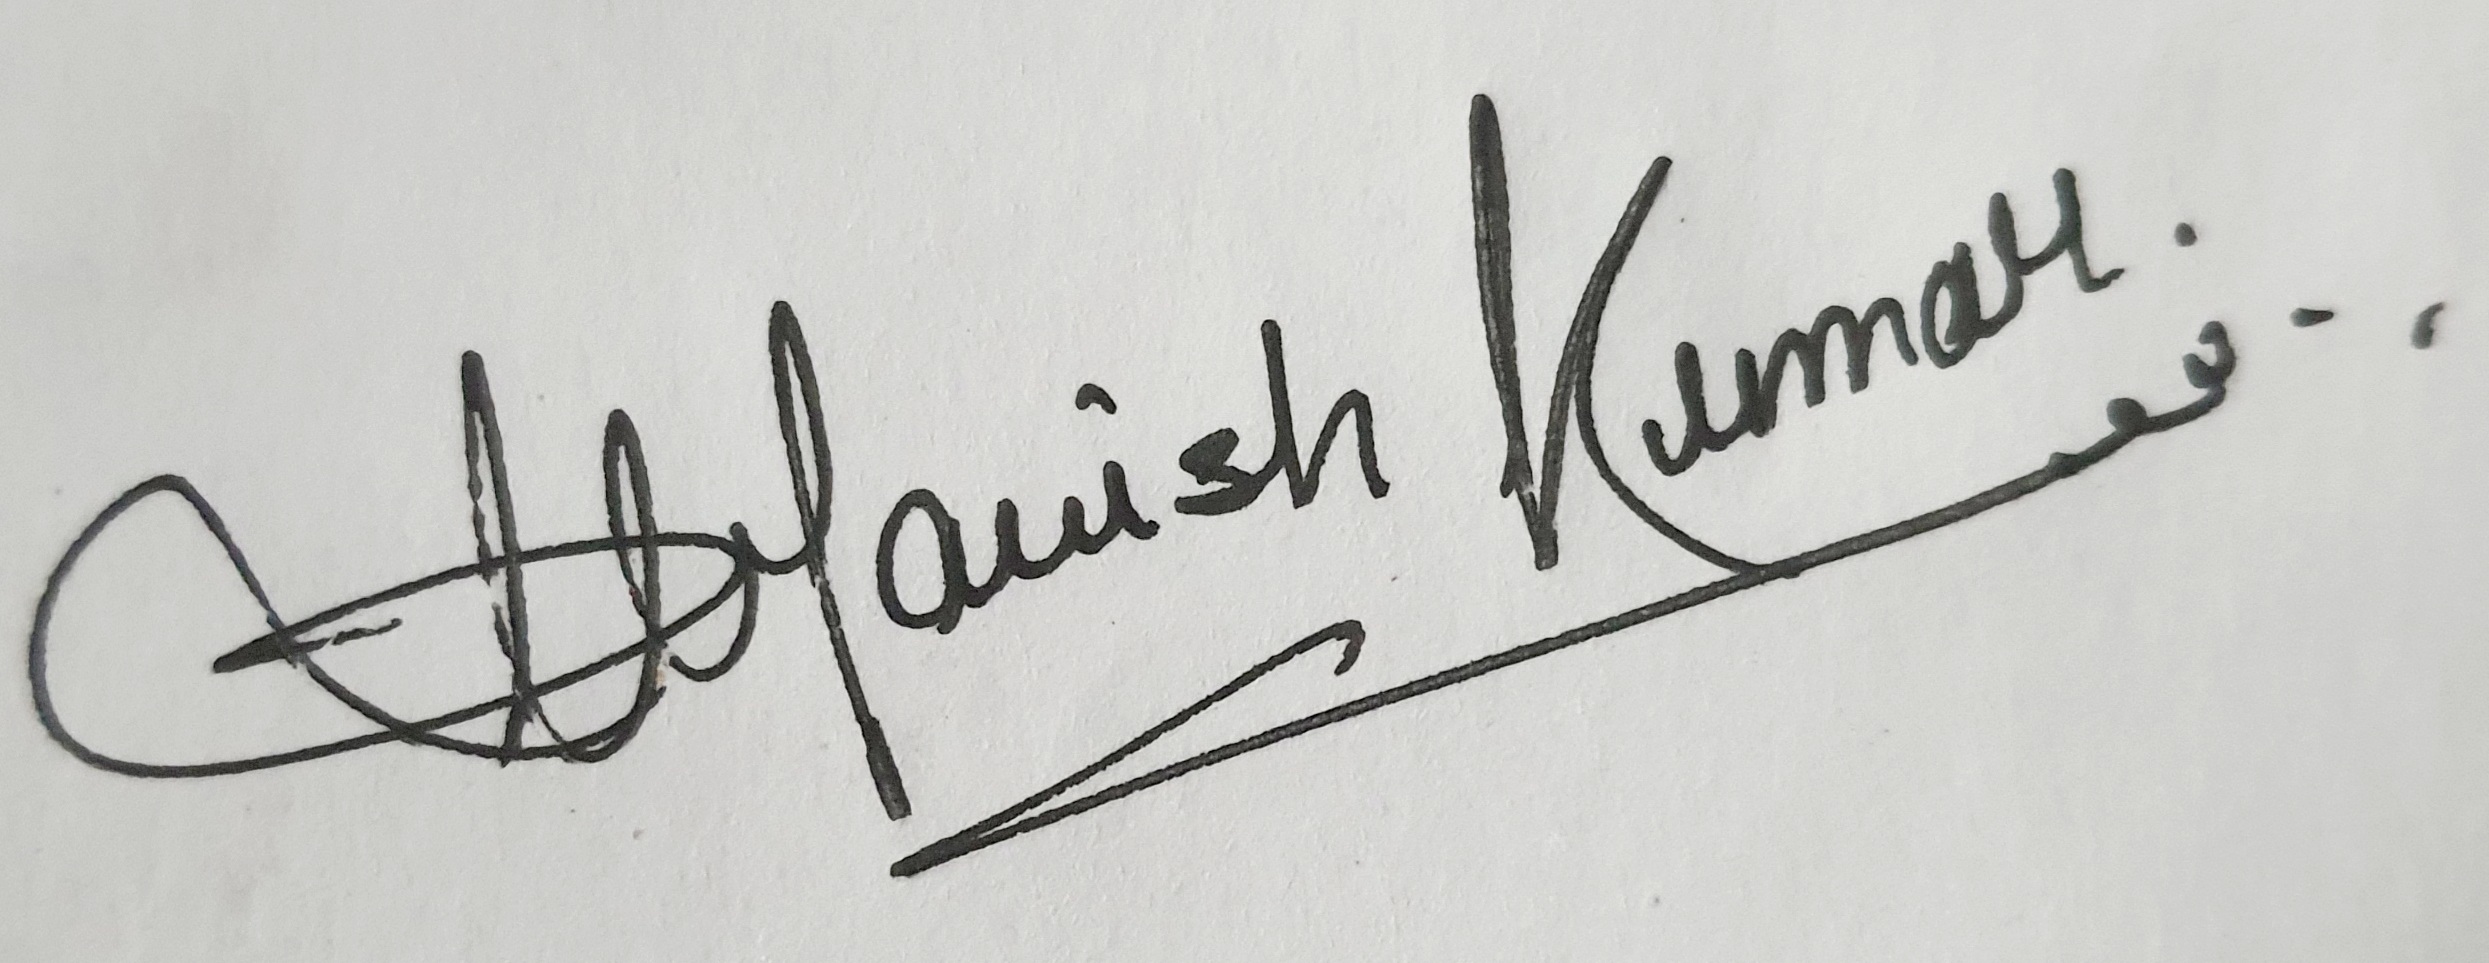 Manish Kumar.